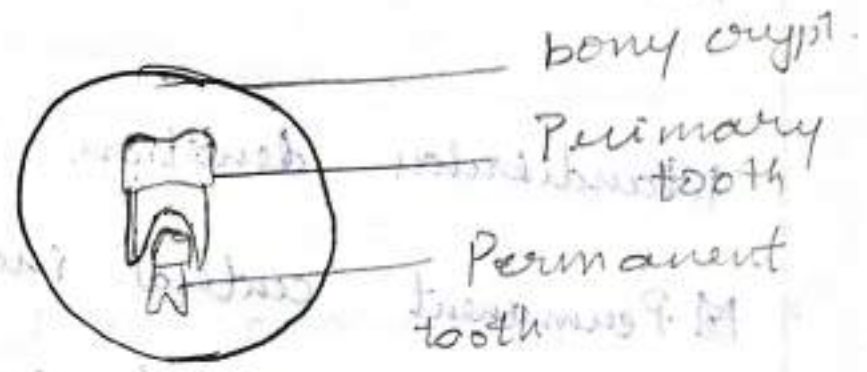 bony crypt.
Primary
tooth
Permanent
tooth